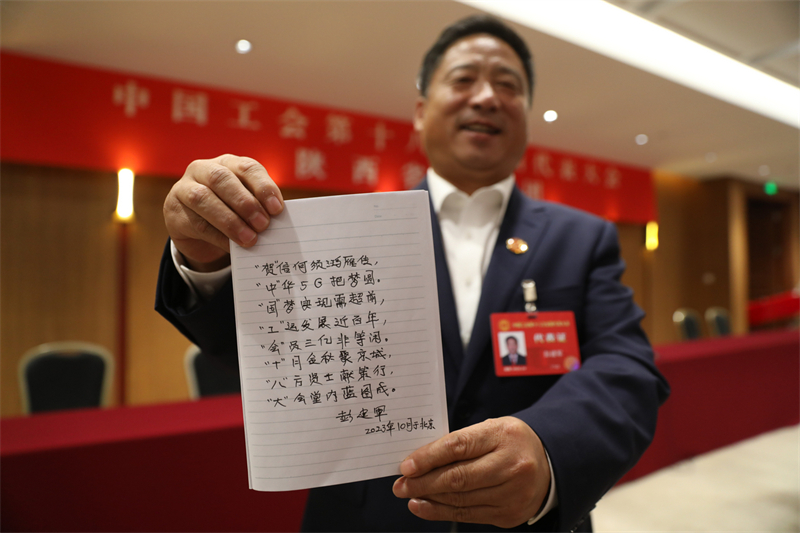 中国工会第十八 代表大会
陕西
代表证
"贺"信何须鸿雁传,
"中"华5G把梦圆。
"国"梦实现需超前,
"工"运发展近百年,
"会"员三亿非等闲。
"十"月金秋聚京城,
"八"方贤士献策行,
"大"会堂内蓝图成。
彭建军
2023年10月于北京